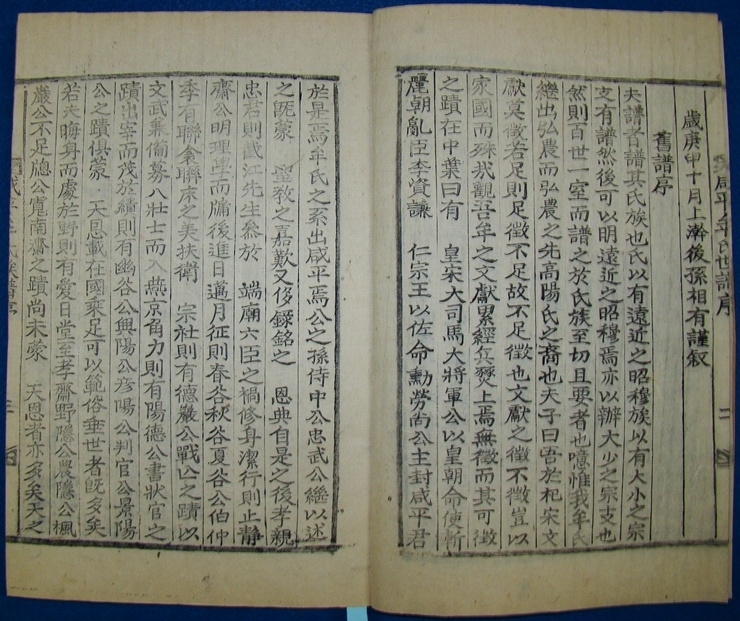 咸平牟氏世譜序
歲庚申十月上澣後孫相有謹叙
舊譜序
夫譜者譜其氏族也氏以有遠近之昭穆族以有大小之宗
支有譜然後可以明遠近之昭穆焉亦以辦大少之宗支也
然則百世一室而譜之於氏族至切且要者也噫惟我牟氏
繼出弘農而弘農之先高陽氏之裔也夫子曰吾於杞宋文
獻莫徵若足則足徵不足故不足徵也文獻之徵不徵豈以
家國而殊哉觀吾牟之文獻累經兵燹上焉無徵而其可徵
之蹟在中葉曰有 皇宋大司馬大將軍公以皇朝命使斬
麗朝亂臣李資謙 仁宗王以佐命勳勞尚公主封咸平君
於是焉牟氏之系出咸平焉公之孫侍中公忠武公繼以述
之旣蒙 聖敎之嘉歎又侈錄銘之 恩典自是之後孝親
忠君則截江先生叅於 端廟六臣之禍修身潔行則止靜
齋公明理學而牖後進日邁月征則春谷秋谷夏谷公伯仲
季有聯翕聯床之美扶衛 宗社則有德嚴公戰亡之蹟以
文武兼備募八壯士而入燕京角力則有陽德公書狀官之
蹟出宰而茂於績則有幽谷公興陽公彥陽公判官公景陽
公之蹟俱蒙 天恩載在國乘足可以範俗垂世者旣多矣
若夫晦身而處於野則有愛日堂至孝齋野隱公農隱公楓
嚴公不足牕公寬南齋之蹟尚未蒙 天恩者亦多矣天之
咸平牟氏族譜序